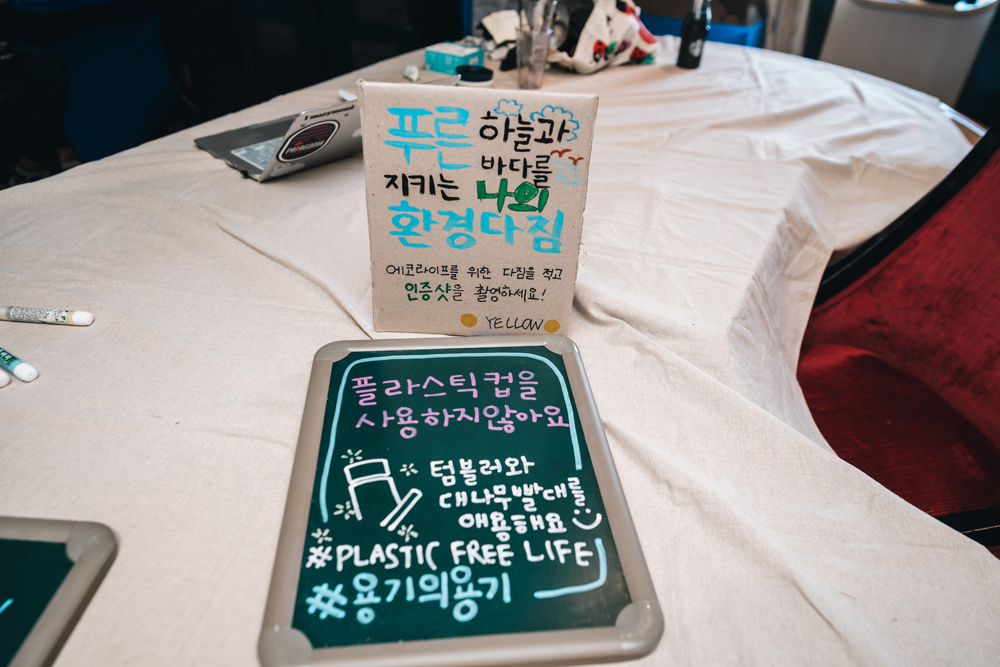 푸른 하늘과
바다를
지키는 나의
환경다짐
에코라이프를 위한 다짐을 적고
인증샷을 촬영하세요!
YELLOW
플라스틱컵을
사용하지않아요
텀블러와
대나무빨대를
애용해요
#PLASTIC FREE LIFE
#용기의용기